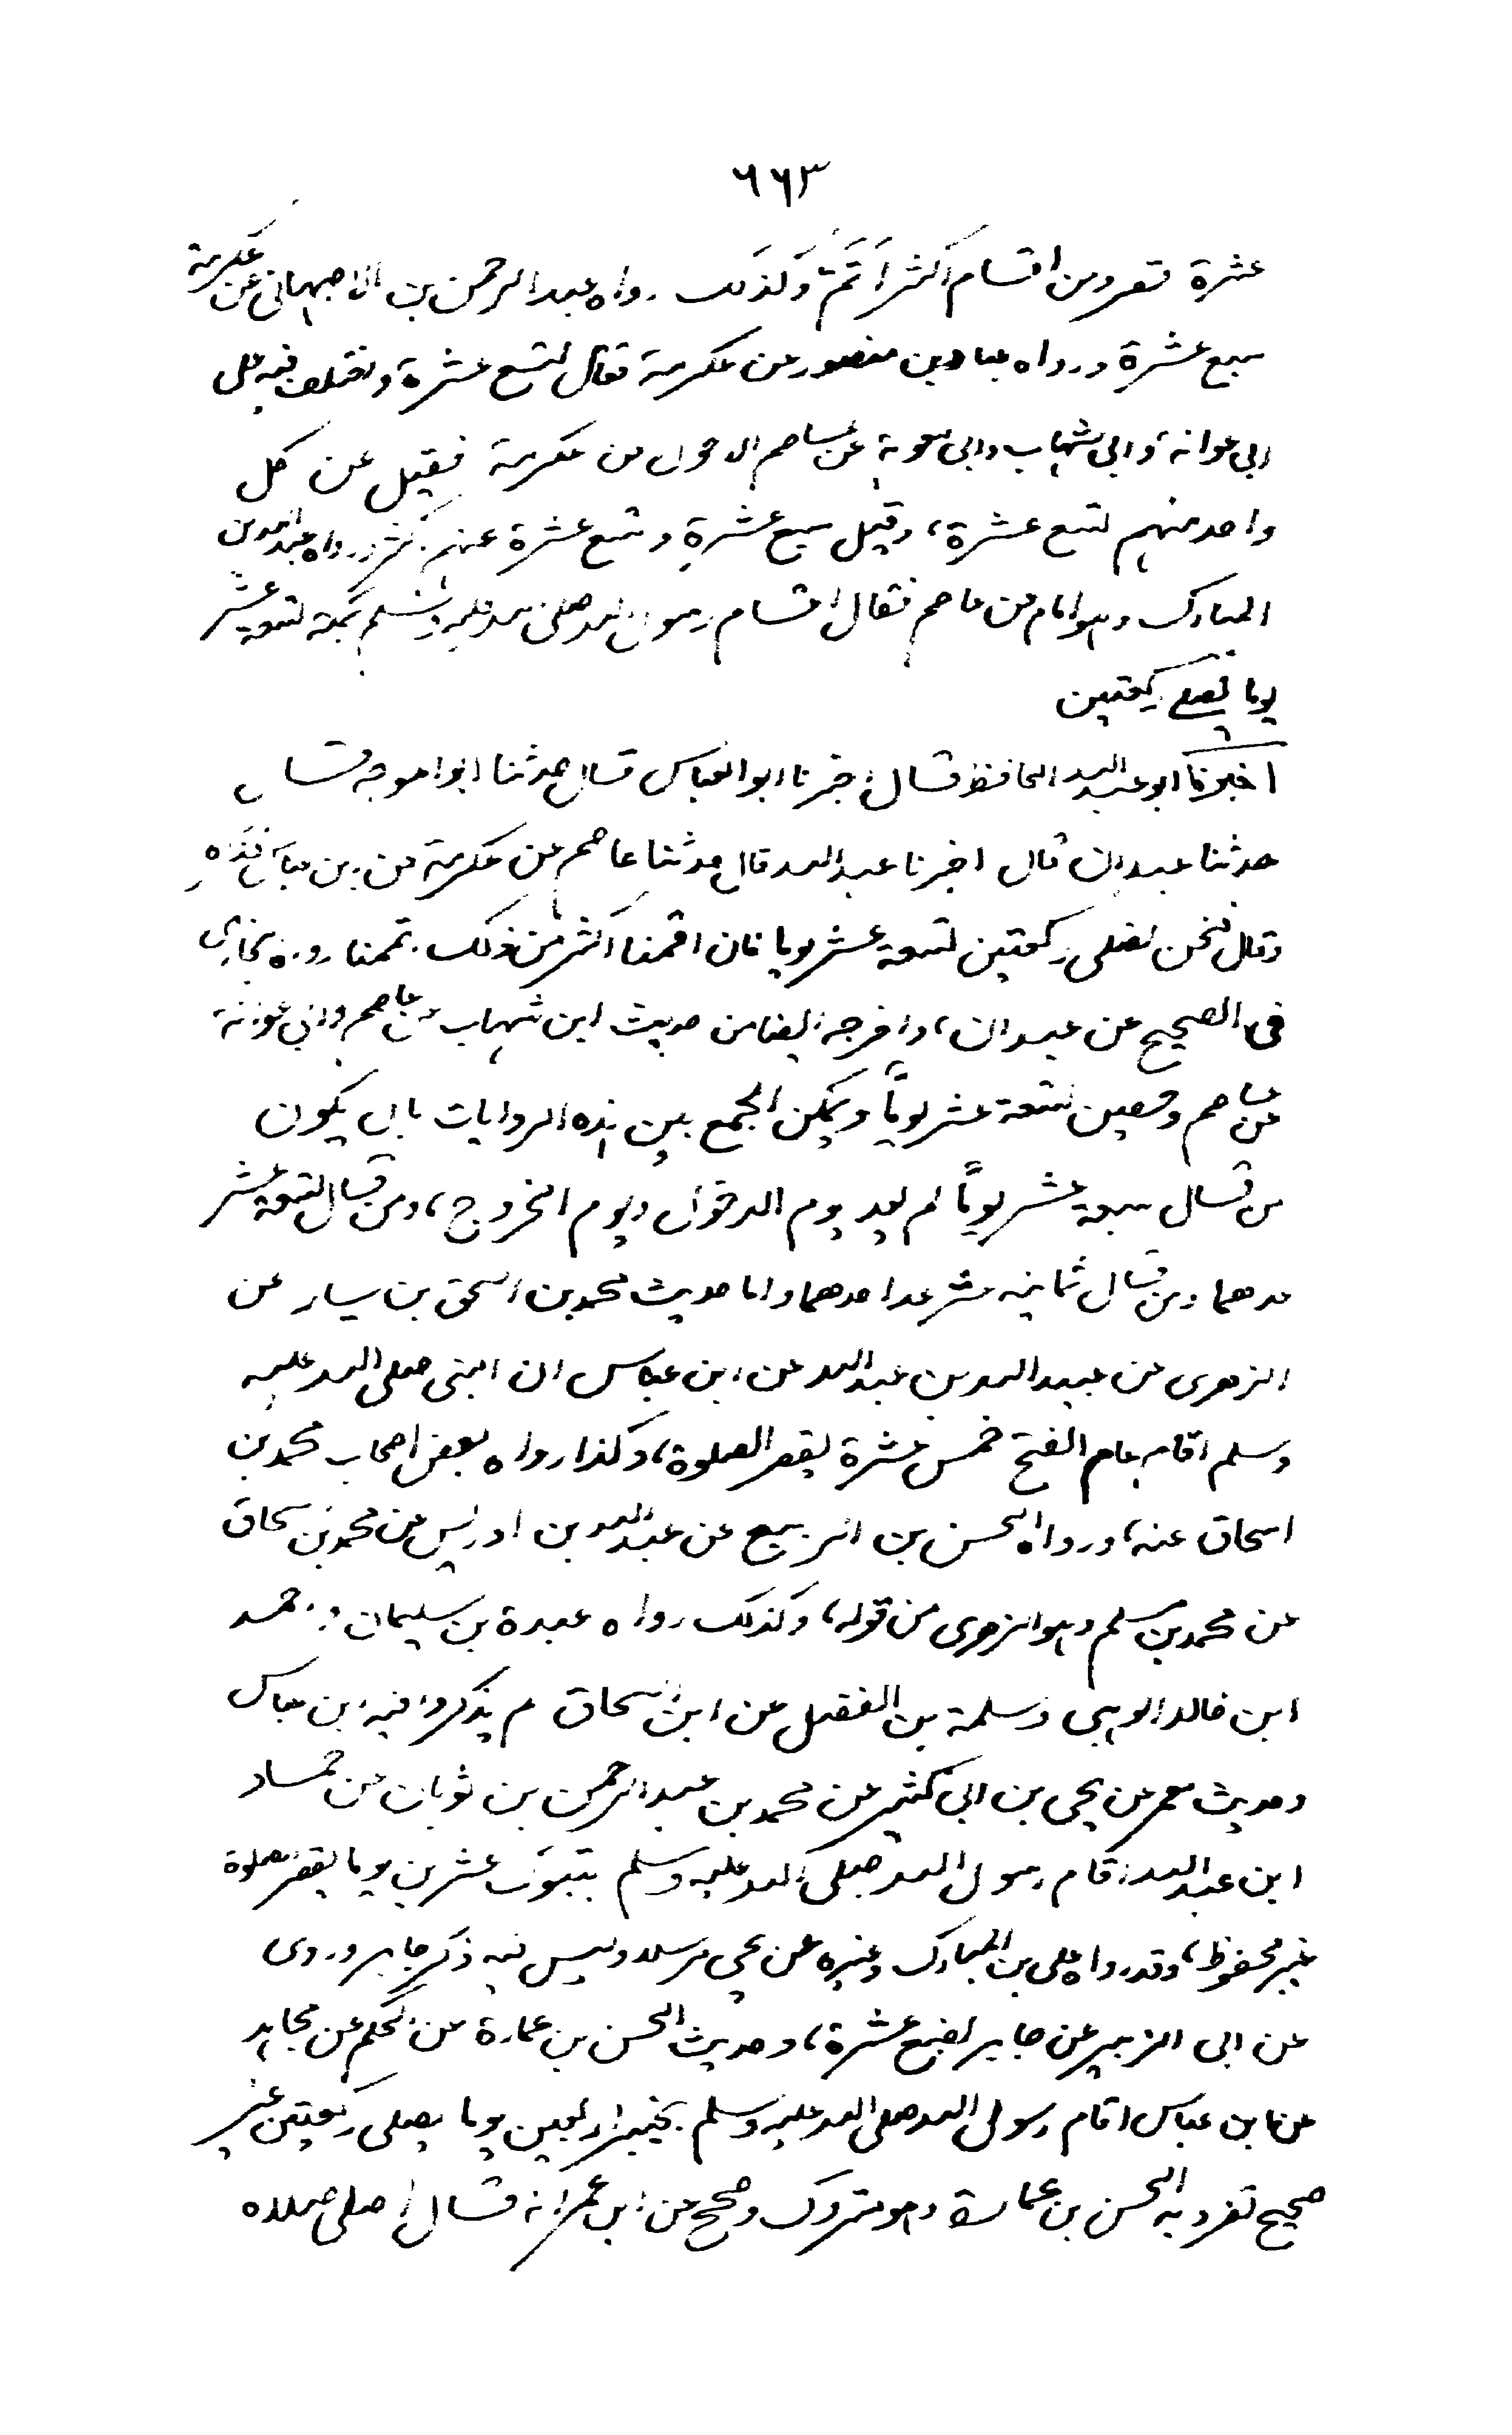 ٦٦٣
عشرة تقصر ومن اقسام اكثر اَتَمَّ وَكَذَلك رواه عبد الرحمن بن الاصبهانى عن عكرمة
سبع عشرة ورواه عباد بن منصور عن عكرمة فقال تسع عشرة واختلف فيه على
ابى عوانة وابى شهاب وابى معوية عن عاصم الاحول عن عكرمة فقيل عن كل
واحد منهم تسع عشرة، وقيل سبع عشرة وتسع عشرة عنهم اكثر ورواه عبد الله بن
المبارك وهو امام عن عاصم فقال اقسام رسول الله صلى الله عليه وسلم بمكة تسعة عشر
يوما يصلى ركعتين
اخبرنا ابو عبد الله الحافظ قسال اخبرنا ابو العباس قسال حدثنا ابو الموجه قسال
حدثنا عبدان قال اخبرنا عبد الله قال حدثنا عاصم عن عكرمة عن ابن عباس فذكره
وقال فنحن نصلى ركعتين تسعة عشر يوما فان اقمنا اكثر من ذلك اتممنا رواه البخارى
فى الصحيح عن عبدان، واخرجه ايضا من حديث ابن شهاب عن عاصم وابى عوانة
عن عاصم وحصين تسعة عشر يوماً ويمكن الجمع بين هذه الروايات بان يكون
من قسال سبعة عشر يوماً لم يعد يوم الدخول ويوم الخروج، ومن قسال تسعة عشر
عدهما ومن قسال ثمانية عشر عد احدهما واما حديث محمد بن اسحق بن يسار عن
الزهرى عن عبيد الله بن عبد الله عن ابن عباس ان النبى صلى الله عليه
وسلم اقام عام الفتح خمس عشرة يقصر الصلوة، وكذا رواه بعض اصحاب محمد بن
اسحاق عنه، ورواه الحسن بن الربيع عن عبد الله بن ادريس عن محمد بن اسحاق
عن محمد بن مسلم وهو الزهرى من قوله، وكذلك رواه عبدة بن سليمان واحمد
ابن خالد الوهبى وسلمة بن الفضل عن ابن اسحاق لم يذكروا فيه ابن عباس
وحديث معمر عن يحى بن ابى كثير عن محمد بن عبد الرحمن بن ثوبان عن جساد
ابن عبد الله اقام رسول الله صلى الله عليه وسلم بتبوك عشرين يوما يقصر الصلوة
غير محفوظ، وقد رواه على بن المبارك وغيره عن يحى مرسلا وليس فيه ذكر جابر وروى
عن ابى الزبير عن جابر بضع عشرة، وحديث الحسن بن عمارة عن الحكم عن مجاهد
عن ابن عباس اقام رسول الله صلى الله عليه وسلم بخيبر اربعين يوما يصلى ركعتين غير
صحيح تفرد به الحسن بن عمارة وهو متروك وصحح عن ابن عمر انه قسال اصلى صلاه